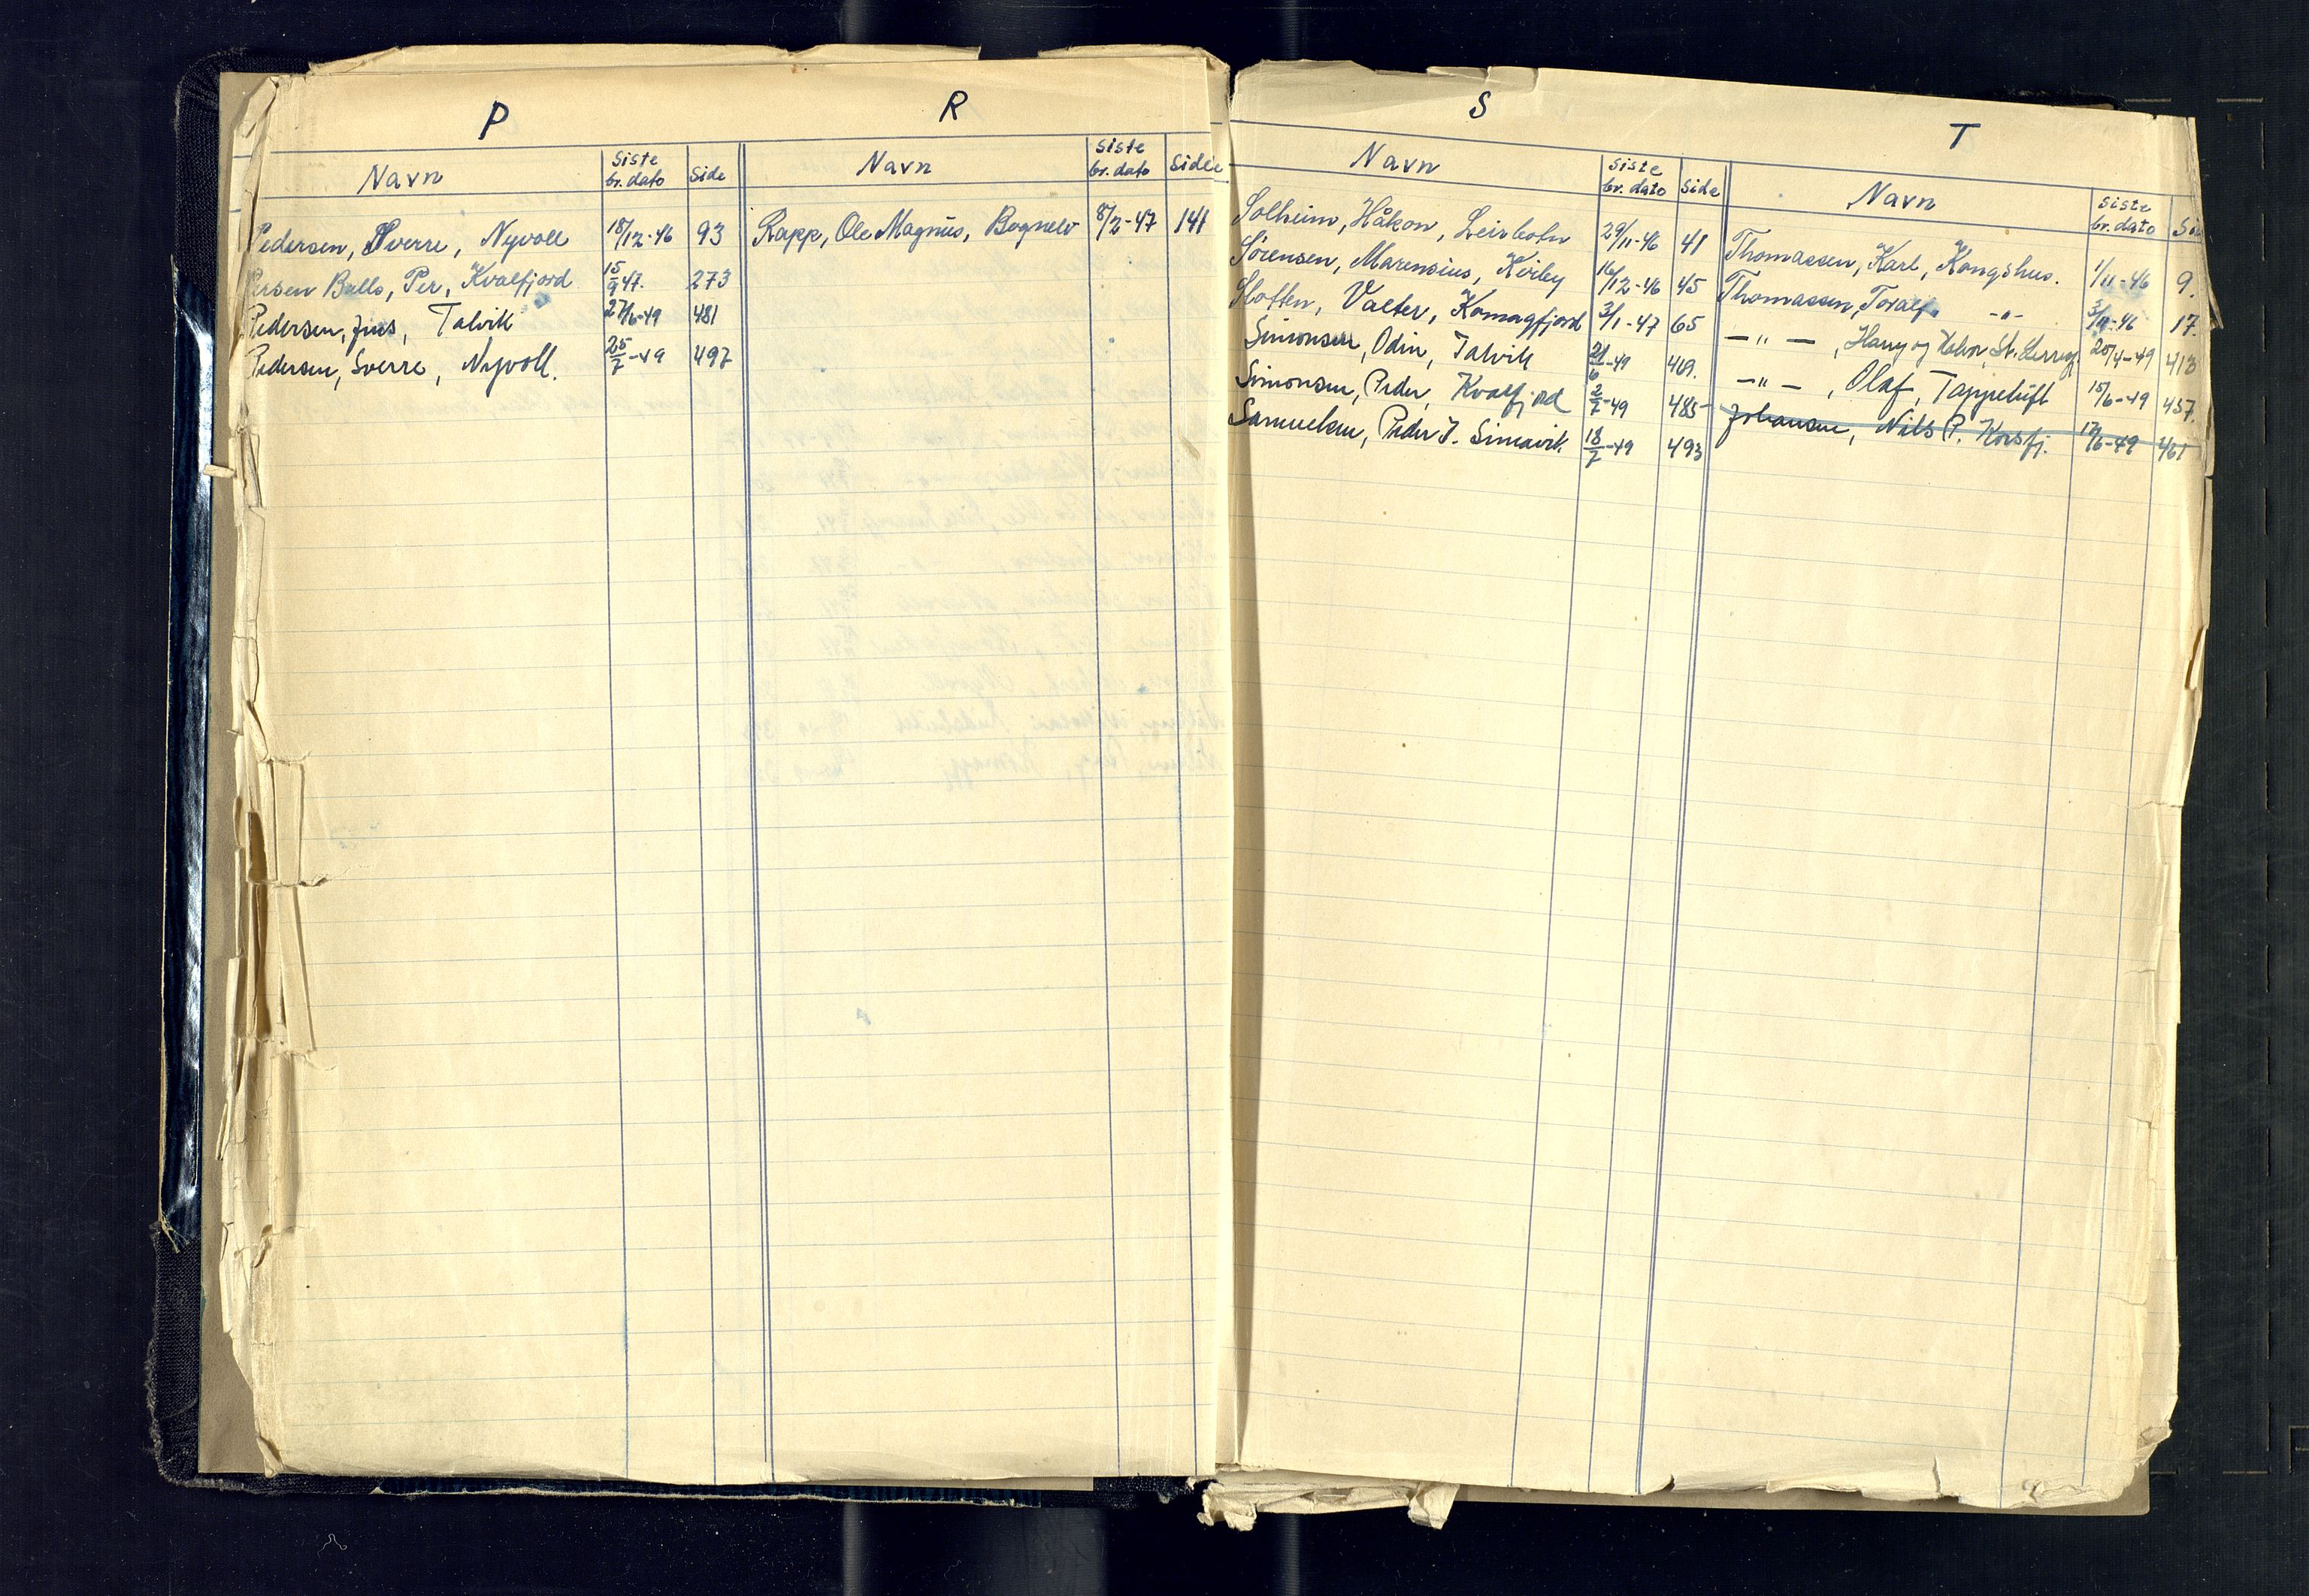 P
Navn Siste br. dato Side
Pedersen, Sverre, Nyvoll 18/12-46 93
Persen Balls, Per, Kvalfjord 15/9 47. 273
Pedersen, Jens, Talvik 27/6-49 481
Pedersen, Sverre, Nyvoll. 25/7-49 497
R
Navn Siste br. dato Side
Rapp, Ole Magnus, Bognelv 8/2-47 141
S
Navn Siste br. dato Side
Solheim, Håkon, Leirbotn 29/11-46 41
Sørensen, Marensius, Kviby 16/12-46 45
Sletten, Valter, Komagfjord 3/1-47 65
Simonsen, Odin, Talvik 21/6-49 469.
Simonsen, Peder, Kvalfjord 2/7-49 485
Samuelsen, Peder J. Simavik. 18/7-49 493
T
Navn Siste br. dato
Thomassen, Karl, Kongshus. 1/11-46 9.
Thomassen, Toralf, -"- 3/11-46 17.
—"—, Harry og Helen, St. Lerresfj. 20/4-49 413
—"—, Olaf, Tappeluft 15/6-49 457.
Johansen, Nils P. Korsfj. 17/6-49 461